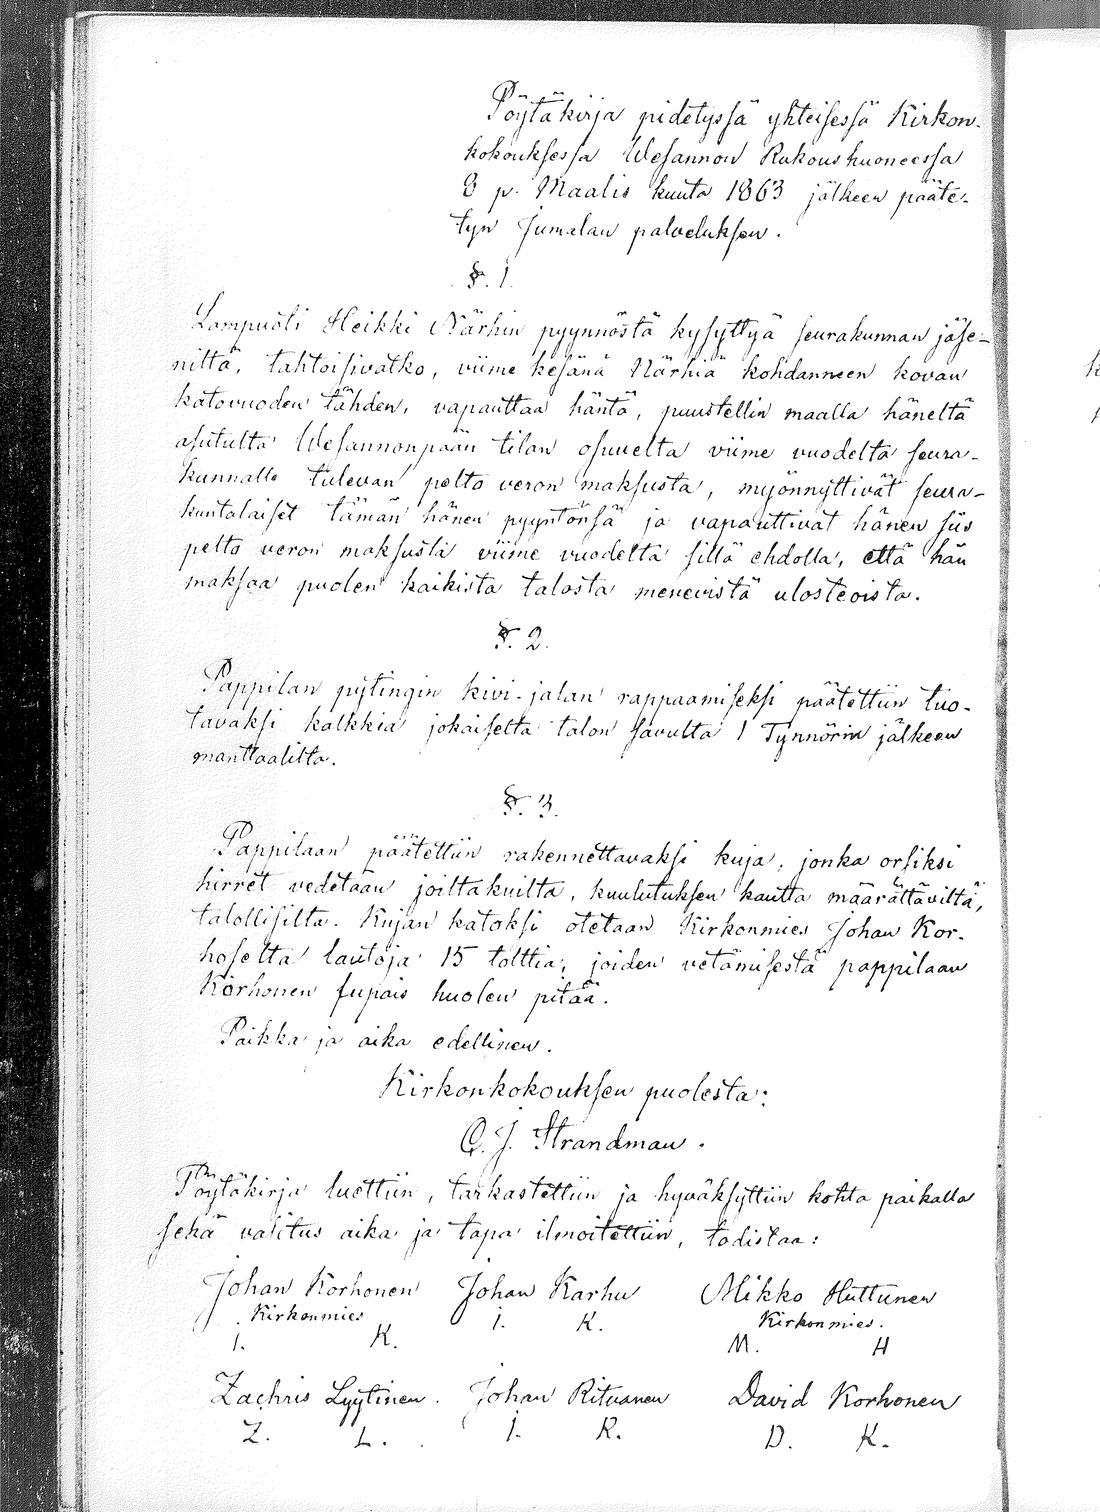 Pöytäkirja pidetyssä yhteisessä Kirkon-
kokouksessa Wesannon Rukoushuoneessa
8 p. Maalis kuuta 1863 jälkeen pääte-
tyn Jumalan palveluksen.
§. 1.
Lampuoli Heikki Närhin pyynnöstä kysyttyä seurakunnan jäse-
niltä, tahtoisivatko, viime kesänä Närhiä kohdanneen kovan
katovuoden tähden, vapauttaa häntä, puustellin maalla häneltä
asutulta Wesannonpään tilan osuvelta viime vuodelta seura-
kunnalle tulevan pelto veron maksusta, myönnyttivät seura-
kuntalaiset tämän hänen pyyntönsä ja vapauttivat hänen siis
pelto veron maksusta viime vuodelta sillä ehdolla, että hän
maksaa puolen kaikista talosta menevistä ulosteoista.
§. 2.
Pappilan pytingin kivi-jalan rappaamiseksi päätettiin tuo-
tavaksi kalkkia jokaiselta talon savulta 1 Tynnörin jälkeen
manttaalilta.
§. 3.
Pappilaan päätettiin rakennettavaksi kuja, jonka orsiksi
hirret vedetään joiltakuilta, kuulutuksen kautta määrättäviltä,
talollisilta. Kujan katoksi otetaan Kirkonmies Johan Kor-
hoselta lautoja 15 tolttia, joiden vetämisestä pappilaan
Korhonen supais huolen pitää.
Paikka ja aika edellinen.
Kirkonkokouksen puolesta:
C. J. Strandman.
Pöytäkirja luettiin, tarkastettiin ja hyväksyttiin kohta paikalla
sekä valitus aika ja tapa ilmoitettiin, todistaa:
Johan Korhonen Johan Karhu Mikko Huttunen
Kirkonmies I. K. Kirkonmies.
I. K. M. H
Zachris Lyytinen. Johan Ritvanen David Korhonen
Z. L. I. R. D. K.